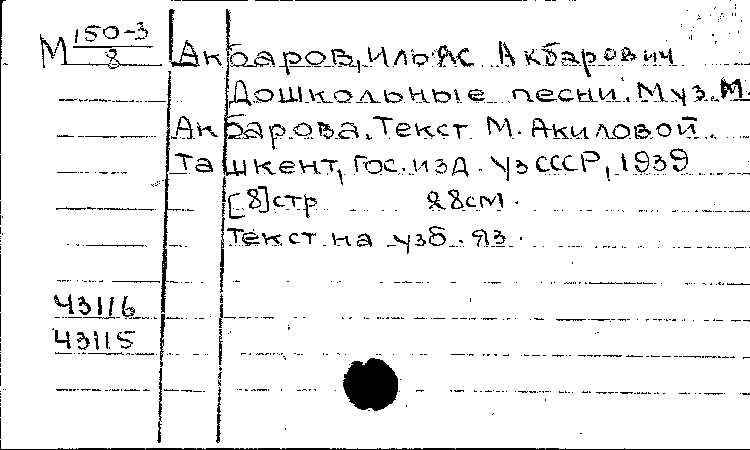 М 150-3/8 Акбаров, Ильяс Акбарович
Дошкольные песни. Муз. М.
Акбарова. Текст М. Акиловой.
Ташкент, Гос. изд. УзСССР, 1939
[8]стр 28см.
Текст на узб. яз.
43116
43115